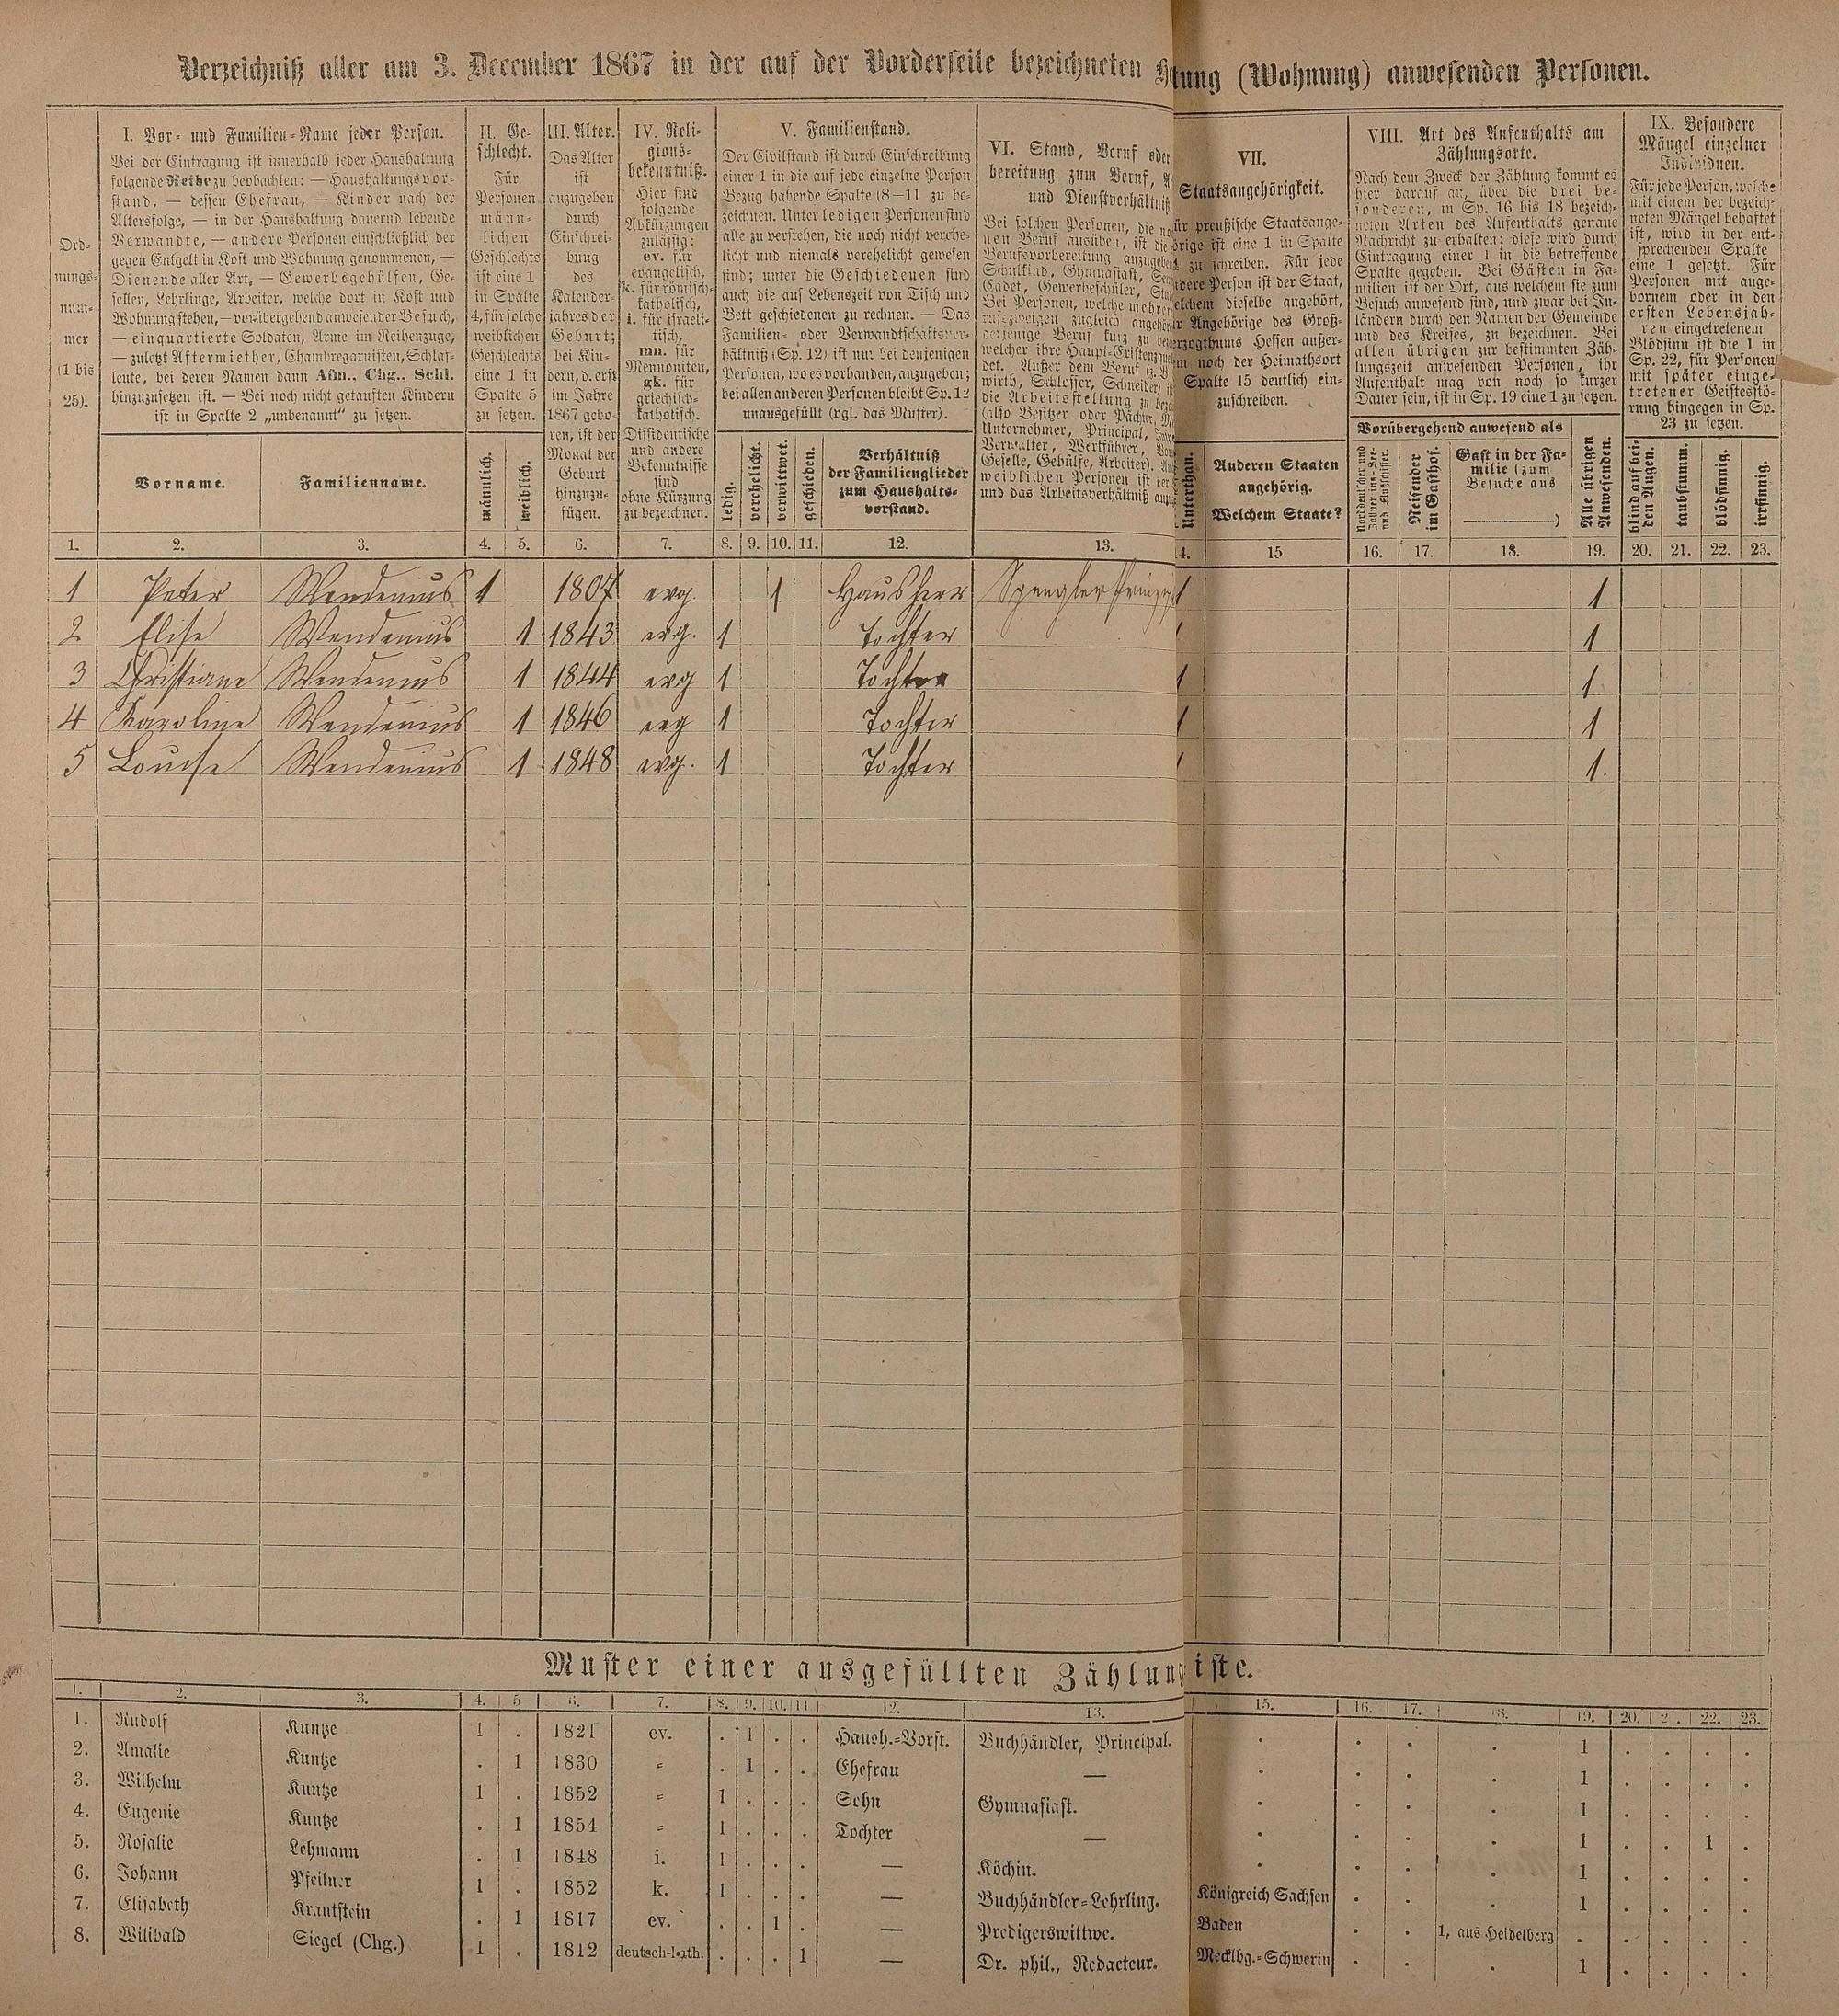 Verzeichniß aller am 3. December 1867 in der auf der Vorderseite bezeichneten H tung (Wohnung) anwesenden Personen.
Ord-
nungs-
num-
mer
(1 bis
25).
I. Vor- und Familien-Name jeder Person.
Bei der Eintragung ist innerhalb jeder Haushaltung
folgende Reihe zu beobachten: — Haushaltungsvor-
stand, — dessen Ehefrau, — Kinder nach der
Altersfolge, — in der Haushaltung dauernd lebende
Verwandte, — andere Personen einschließlich der
gegen Entgelt in Kost und Wohnung genommenen, —
Dienende aller Art, — Gewerbsgehülfen, Ge-
sellen, Lehrlinge, Arbeiter, welche dort in Kost und
Wohnung stehen, — vorübergehend anwesender Besuch,
— einquartierte Soldaten, Arme im Reihenzuge,
— zuletzt Aftermiether, Chambregarnisten, Schlaf-
leute, bei deren Namen dann Afm., Chg., Schl.
hinzuzusetzen ist. — Bei noch nicht getauften Kindern
ist in Spalte 2 „unbenannt“ zu setzen.
Vorname.
Familienname.
II. Ge-
schlecht.
Für
Personen
männ-
lichen
Geschlechts
ist eine 1
in Spalte
4, für solche
weiblichen
Geschlechts
eine 1 in
Spalte 5
zu setzen.
männlich.
weiblich.
III. Alter.
Das Alter
ist
anzugeben
durch
Einschrei-
bung
des
Kalender-
jahres der
Geburt;
bei Kin-
dern, d. erst
im Jahre
1867 gebo-
ren, ist der
Monat der
Geburt
hinzuzu-
fügen.
IV. Reli-
gions-
bekenntniß.
Hier sind
folgende
Abkürzungen
zulässig:
ev. für
evangelisch,
k. für römisch-
katholisch,
i. für israeli-
tisch,
mn. für
Mennoniten,
gk. für
griechisch-
katholisch.
Dissidentische
und andere
Bekenntnisse
sind
ohne Kürzung
zu bezeichnen.
V. Familienstand.
Der Civilstand ist durch Einschreibung
einer 1 in die auf jede einzelne Person
Bezug habende Spalte (8—11 zu be-
zeichnen. Unter ledigen Personen sind
alle zu verstehen, die noch nicht verehe-
licht und niemals verehelicht gewesen
sind; unter die Geschiedenen sind
auch die auf Lebenszeit von Tisch und
Bett geschiedenen zu rechnen. — Das
Familien- oder Verwandtschaftsver-
hältniß (Sp. 12) ist nur bei denjenigen
Personen, wo es vorhanden, anzugeben;
bei allen anderen Personen bleibt Sp. 12
unausgefüllt (vgl. das Muster).
ledig.
verehelicht.
verwittwet.
geschieden.
Verhältniß
der Familienglieder
zum Haushalts-
vorstand.
VI. Stand, Beruf oder
bereitung zum Beruf,
und Dienstverhältniß
Bei solchen Personen, die
nen Beruf ausüben, ist die
Berufsvorbereitung anzugeben
Schulkind, Gymnasiast,
Cadet, Gewerbeschüler,
Bei Personen, welche mehrer
rufszweigen zugleich angehör
derjenige Beruf kurz zu
welcher ihre Haupt-Existenz
det. Außer dem Beruf (z. B
wirth, Schlosser, Schneider)
die Arbeitsstellung zu
(also Besitzer oder Pächter,
Unternehmer, Principal,
Verwalter, Werkführer,
Geselle, Gehülfe, Arbeiter).
weiblichen Personen ist
und das Arbeitsverhältniß
VII.
Staatsangehörigkeit.
ür preußische Staatsange-
örige ist eine 1 in Spalte
zu schreiben. Für jede
ndere Person ist der Staat,
elchem dieselbe angehört,
r Angehörige des Groß-
erzogthums Hessen außer-
m noch der Heimathsort
Spalte 15 deutlich ein-
zuschreiben.
Unterthan.
Anderen Staaten
angehörig.
Welchem Staate?
VIII. Art des Aufenthalts am
Zählungsorte.
Nach dem Zweck der Zählung kommt es
hier darauf an, über die drei be-
sonderen, in Sp. 16 bis 18 bezeich-
neten Arten des Aufenthalts genaue
Nachricht zu erhalten; diese wird durch
Eintragung einer 1 in die betreffende
Spalte gegeben. Bei Gästen in Fa-
milien ist der Ort, aus welchem sie zum
Besuch anwesend sind, und zwar bei In-
ländern durch den Namen der Gemeinde
und des Kreises, zu bezeichnen. Bei
allen übrigen zur bestimmten Zäh-
lungszeit anwesenden Personen, ihr
Aufenthalt mag von noch so kurzer
Dauer sein, ist in Sp. 19 eine 1 zu setzen.
Vorübergehend anwesend als
Norddeutscher und
Zollvereins-See-
und Flußschiffer.
Reisender
im Gasthof.
Gast in der Fa-
milie (zum
Besuche aus
)
Alle übrigen
Anwesenden.
IX. Besondere
Mängel einzelner
Individuen.
Für jede Person, welche
mit einem der bezeich-
neten Mängel behaftet
ist, wird in der ent-
sprechenden Spalte
eine 1 gesetzt. Für
Personen mit ange-
bornem oder in den
ersten Lebensjah-
ren eingetretenem
Blödsinn ist die 1 in
Sp. 22, für Personen
mit später einge-
tretener Geistesstö-
rung hingegen in Sp.
23 zu setzen.
blind auf bei-
den Augen.
taubstumm.
blödsinnig.
irrsinnig.
1. 2. 3. 4. 5. 6. 7. 8. 9. 10. 11. 12. 13. 4. 15 16. 17. 18. 19. 20. 21. 22. 23.
1 Peter Wendenius 1 1807 evg. 1 Hausherr Spengler 1 1
2 Elise Wendenius 1 1843 evg. 1 Tochter 1 1
3 Christiane Wendenius 1 1844 evg 1 Tochter 1 1.
4 Karoline Wendenius 1 1846 evg 1 Tochter 1 1
5 Louise Wendenius 1 1848 evg. 1 Tochter 1 1.
Muster einer ausgefüllten Zählung iste.
1. 2. 3. 4. 5 6. 7. 8. 9. 10. 11 12. 13. 15. 16. 17. 18. 19. 20. 2 . 22. 23.
1. Rudolf Kuntze 1 . 1821 ev. . 1 . . Haush.-Vorst. Buchhändler, Principal. . . . . 1 . . . .
2. Amalie Kuntze . 1 1830 = . 1 . . Ehefrau — . . . . 1 . . . .
3. Wilhelm Kuntze 1 . 1852 = 1 . . . Sohn Gymnasiast. . . . . 1 . . . .
4. Eugenie Kuntze . 1 1854 = 1 . . . Tochter — . . . . 1 . . 1 .
5. Rosalie Lehmann . 1 1848 i. 1 . . . — Köchin. . . . . 1 . . . .
6. Johann Pfeilner 1 . 1852 k. 1 . . . — Buchhändler-Lehrling. Königreich Sachsen . . . 1 . . . .
7. Elisabeth Krautstein . 1 1817 ev. . . 1 . — Predigerswittwe. Baden . . 1, aus Heidelberg . . . . .
8. Wilibald Siegel (Chg.) 1 . 1812 deutsch-kath. . . . 1 — Dr. phil., Redacteur. Mecklbg.-Schwerin . . . 1 . . . .